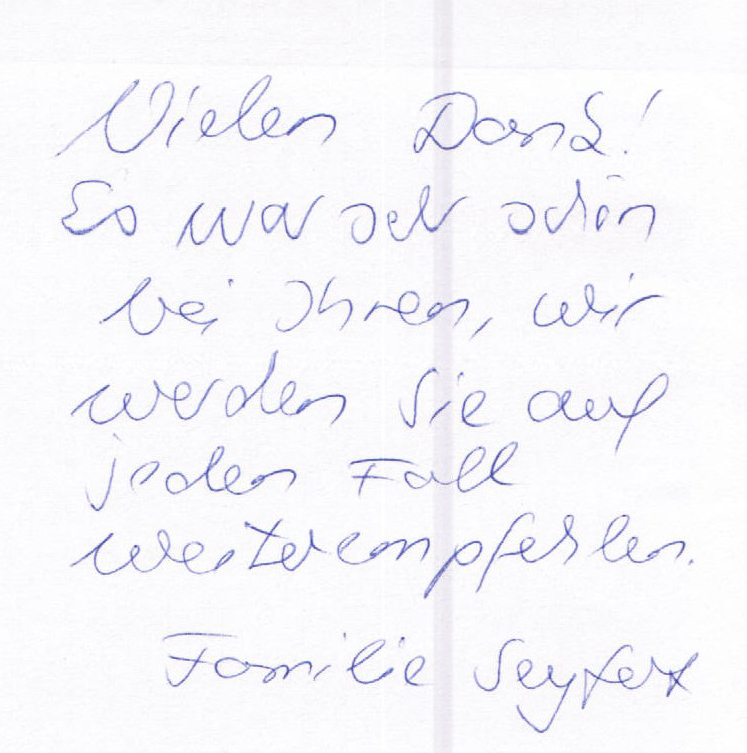 Vielen Dank!
Es war sehr schön
bei Ihnen, wir
werden Sie auf
jeden Fall
weiterempfehlen.
Familie Seyfert